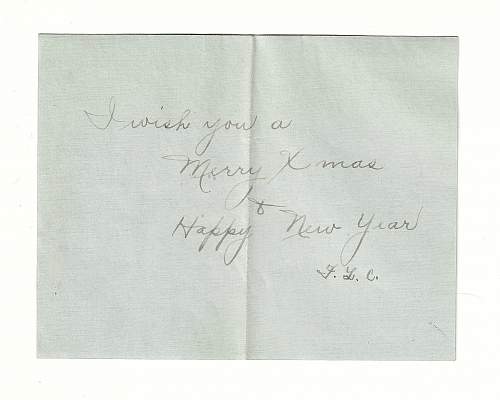 I wish you a
Merry Xmas
&
Happy New Year
F. L. C.